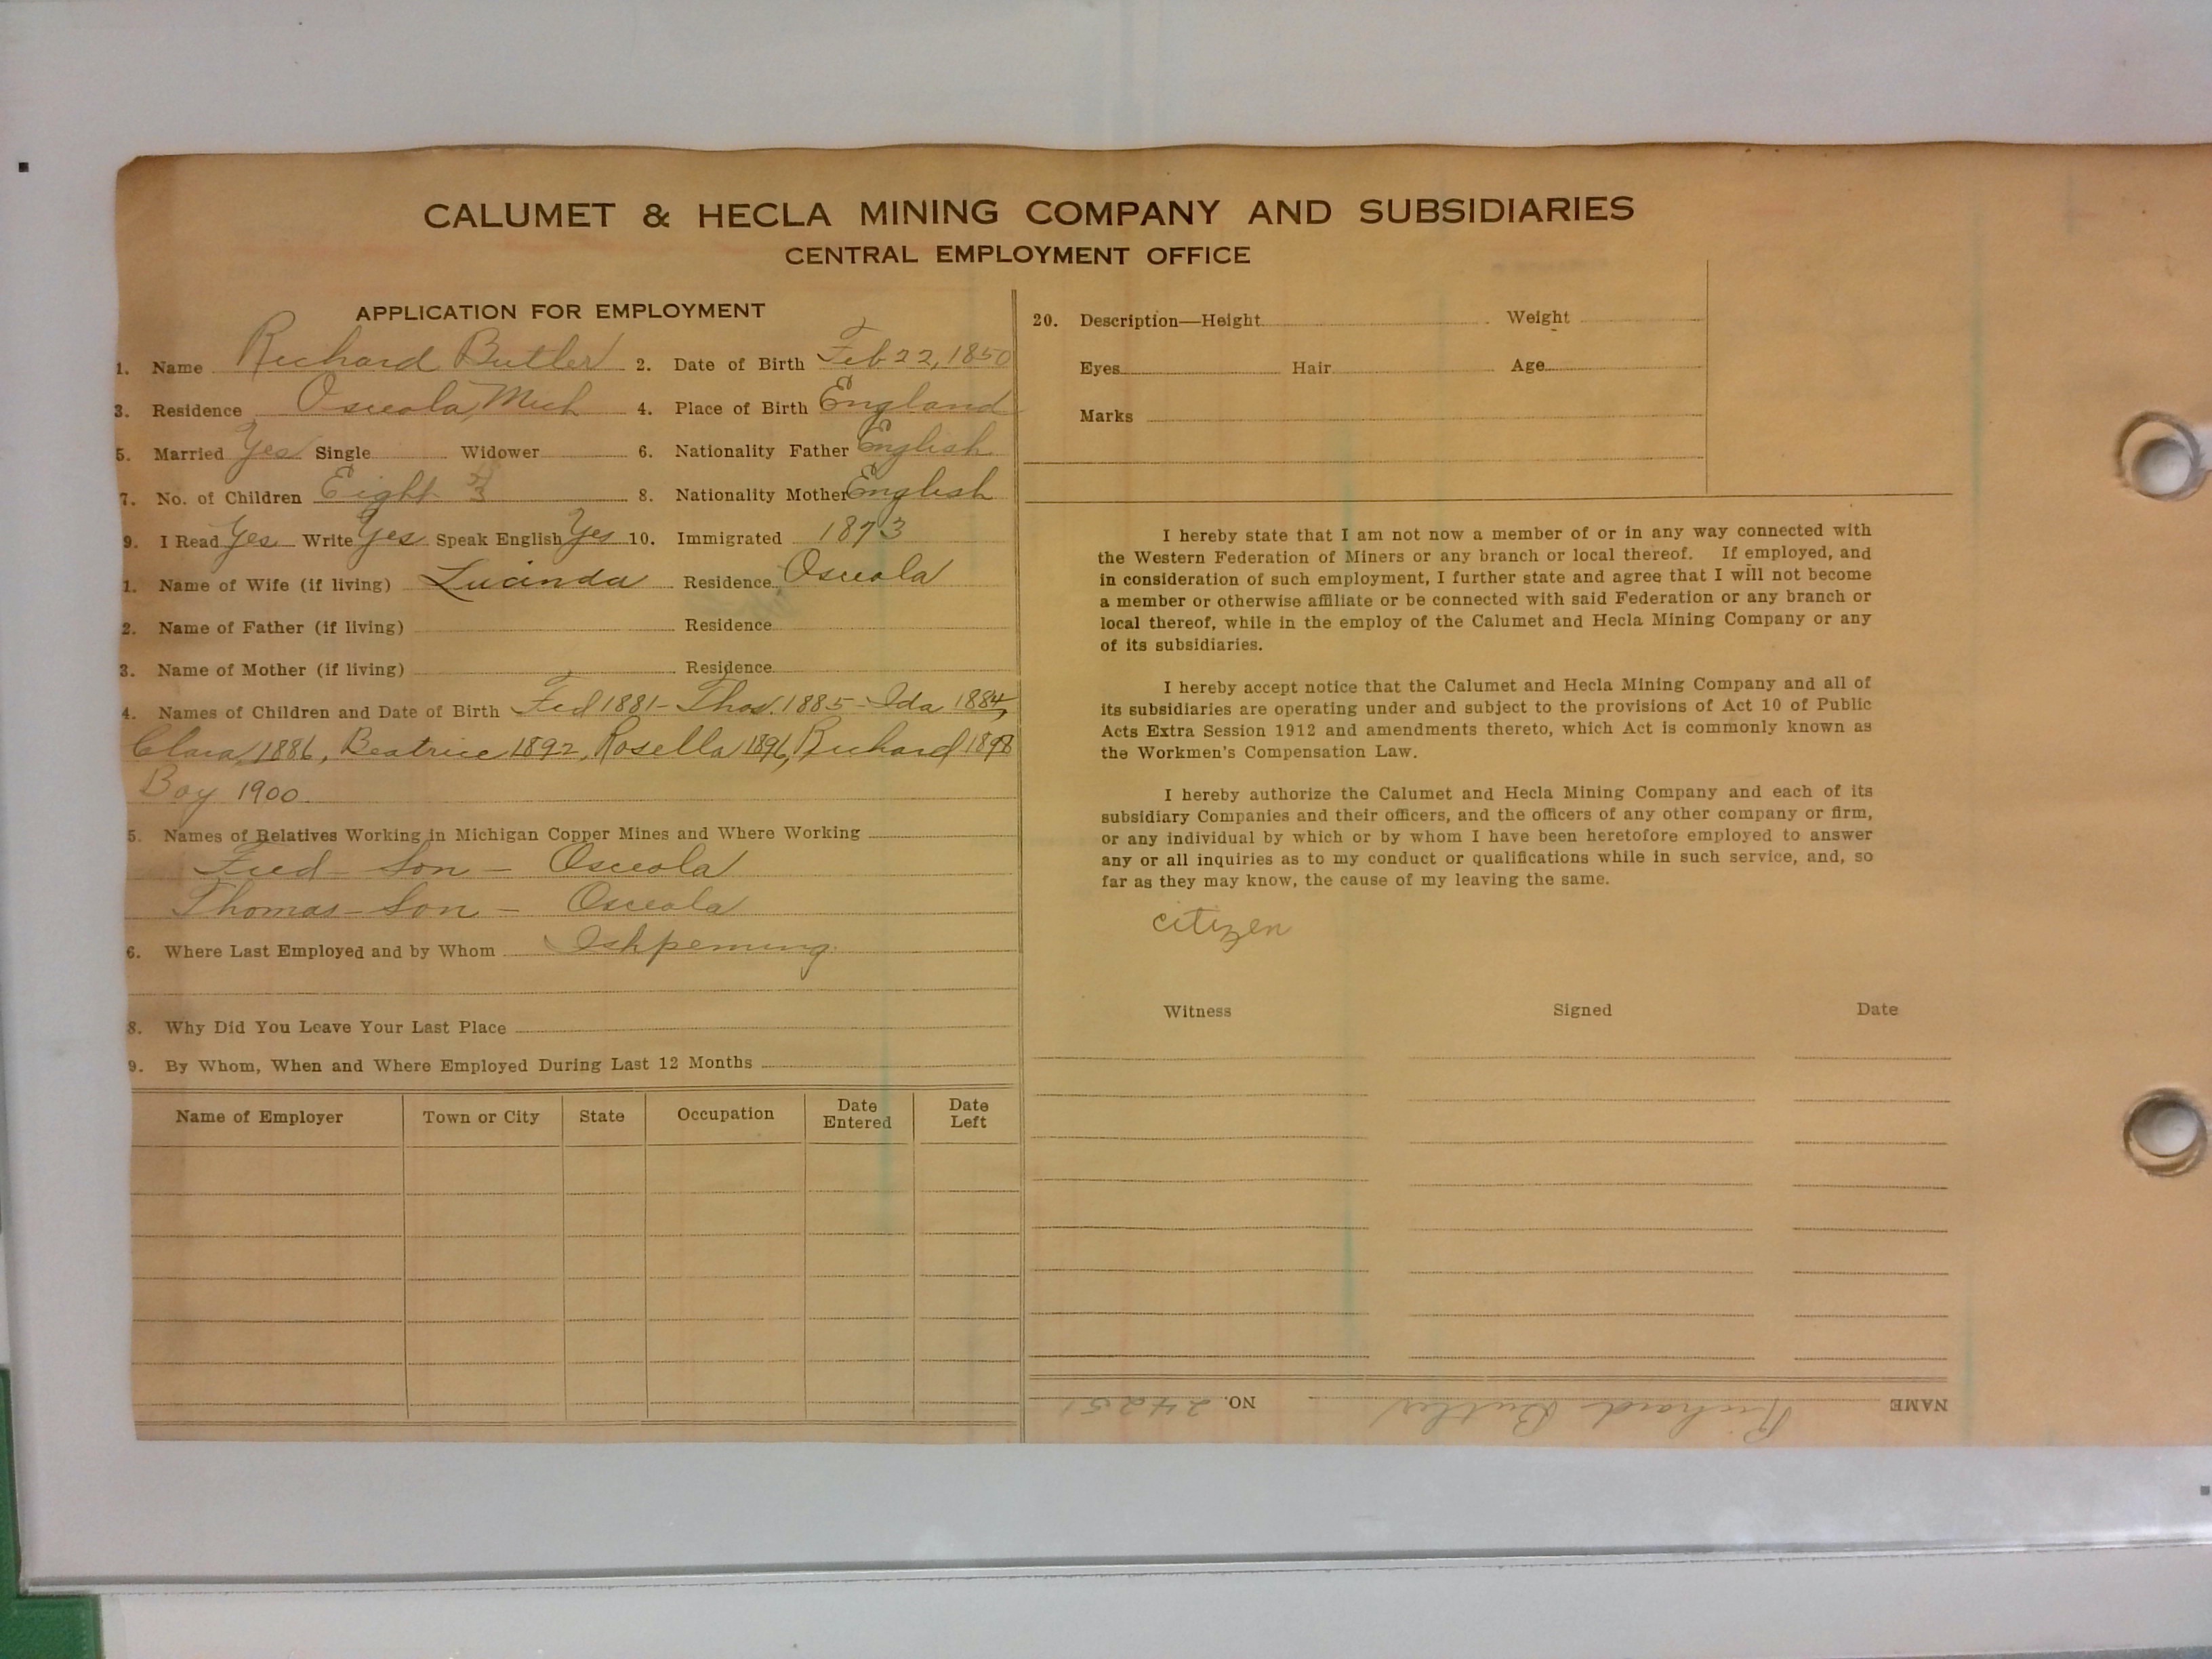 CALUMET & HECLA MINING COMPANY AND SUBSIDIARIES
CENTRAL EMPLOYMENT OFFICE
APPLICATION FOR EMPLOYMENT
1. Name Richard Butler 2. Date of Birth Feb 22, 1850
3. Residence Osceola, Mich 4. Place of Birth England
5. Married Yes Single Widower 6. Nationality Father English
7. No. of Children Eight 8. Nationality Mother English
9. I Read Yes Write Yes Speak English Yes 10. Immigrated 1873
1. Name of Wife (if living) Lucinda Residence Osceola
2. Name of Father (if living) Residence
3. Name of Mother (if living) Residence
4. Names of Children and Date of Birth Fred 1881 - Thos. 1885 - Ida 1884,
Clara, 1886, Beatrice 1892, Rosella 1896, Richard 1898
Boy 1900
5. Names of Relatives Working in Michigan Copper Mines and Where Working
Fred - Son - Osceola
Thomas - Son - Osceola
6. Where Last Employed and by Whom Ishpeming
8. Why Did You Leave Your Last Place
9. By Whom, When and Where Employed During Last 12 Months
Name of Employer Town or City State Occupation Date Entered Date Left
20. Description—Height Weight
Eyes Hair Age
Marks
I hereby state that I am not now a member of or in any way connected with
the Western Federation of Miners or any branch or local thereof. If employed, and
in consideration of such employment, I further state and agree that I will not become
a member or otherwise affiliate or be connected with said Federation or any branch or
local thereof, while in the employ of the Calumet and Hecla Mining Company or any
of its subsidiaries.
I hereby accept notice that the Calumet and Hecla Mining Company and all of
its subsidiaries are operating under and subject to the provisions of Act 10 of Public
Acts Extra Session 1912 and amendments thereto, which Act is commonly known as
the Workmen's Compensation Law.
I hereby authorize the Calumet and Hecla Mining Company and each of its
subsidiary Companies and their officers, and the officers of any other company or firm,
or any individual by which or by whom I have been heretofore employed to answer
any or all inquiries as to my conduct or qualifications while in such service, and, so
far as they may know, the cause of my leaving the same.
citizen
Witness Signed Date
NAME Richard Butler NO. 24251